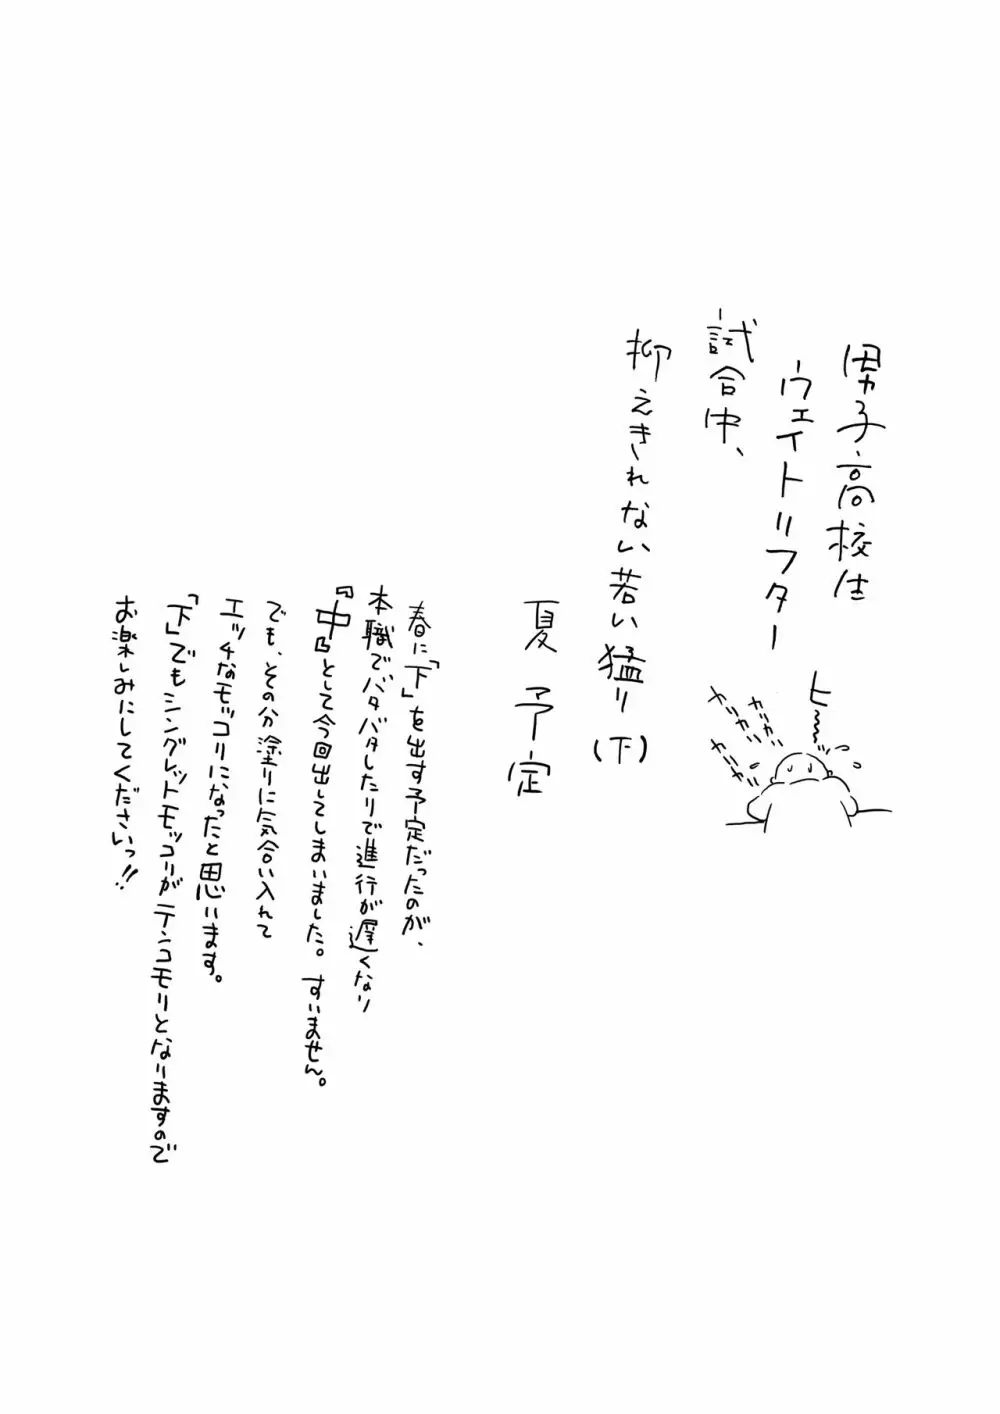 男子高校生
ウェイトリフター
試合中、
抑えきれない若い猛り(下)
夏予定
ヒ〜
カリカリ
カリカリ
カリカリ
春に「下」を出す予定だったのが、
本職でバタバタしたりで進行が遅くなり
『中』として今回出してしまいました。すいません。
でも、その分塗りに気合い入れて
エッチなモッコリになったと思います。
「下」でもシングレットモッコリがテンコモリとなりますので
お楽しみにしてくださいっ!!